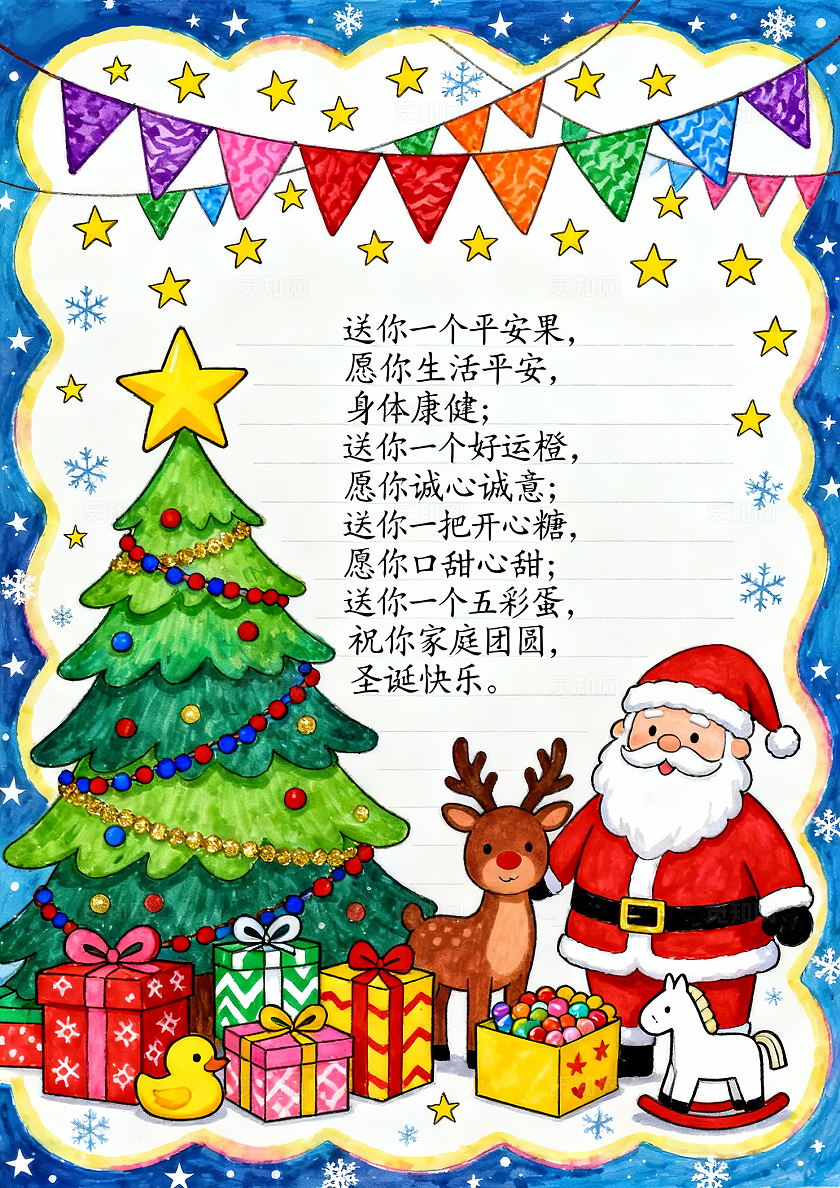 送你一个平安果，
愿你生活平安，
身体康健；
送你一个好运橙，
愿你诚心诚意；
送你一把开心糖，
愿你口甜心甜；
送你一个五彩蛋，
祝你家庭团圆，
圣诞快乐。